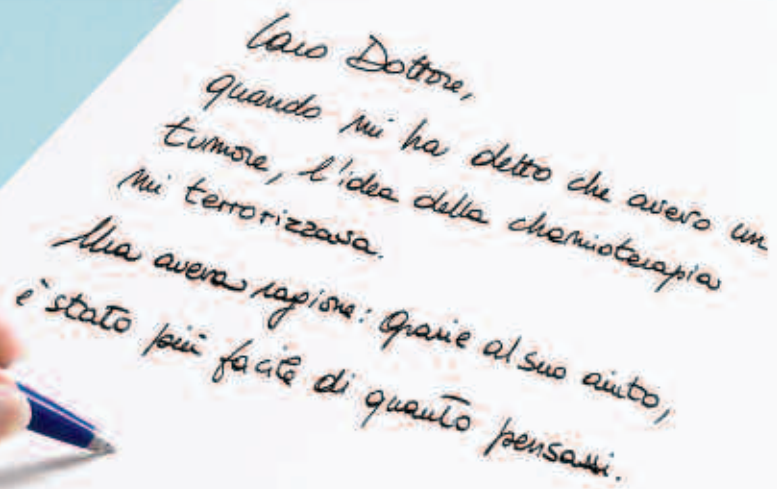 Caro Dottore,
quando mi ha detto che avevo un
tumore, l'idea della chemioterapia
mi terrorizzava.
Ma aveva ragione: grazie al suo aiuto,
è stato più facile di quanto pensassi.